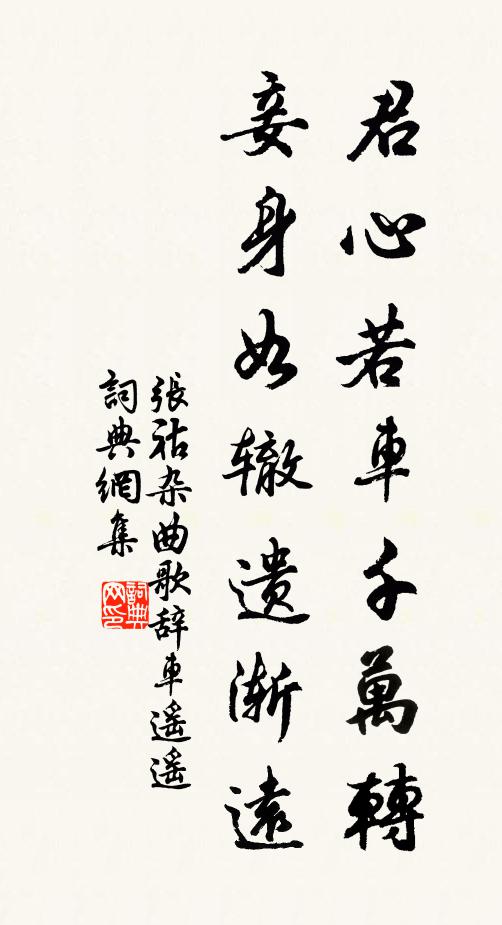 君心若車千萬轉
妾身如辙遗渐遠
張祜杂曲歌辞車遥遥
詞典網集
詞典网印